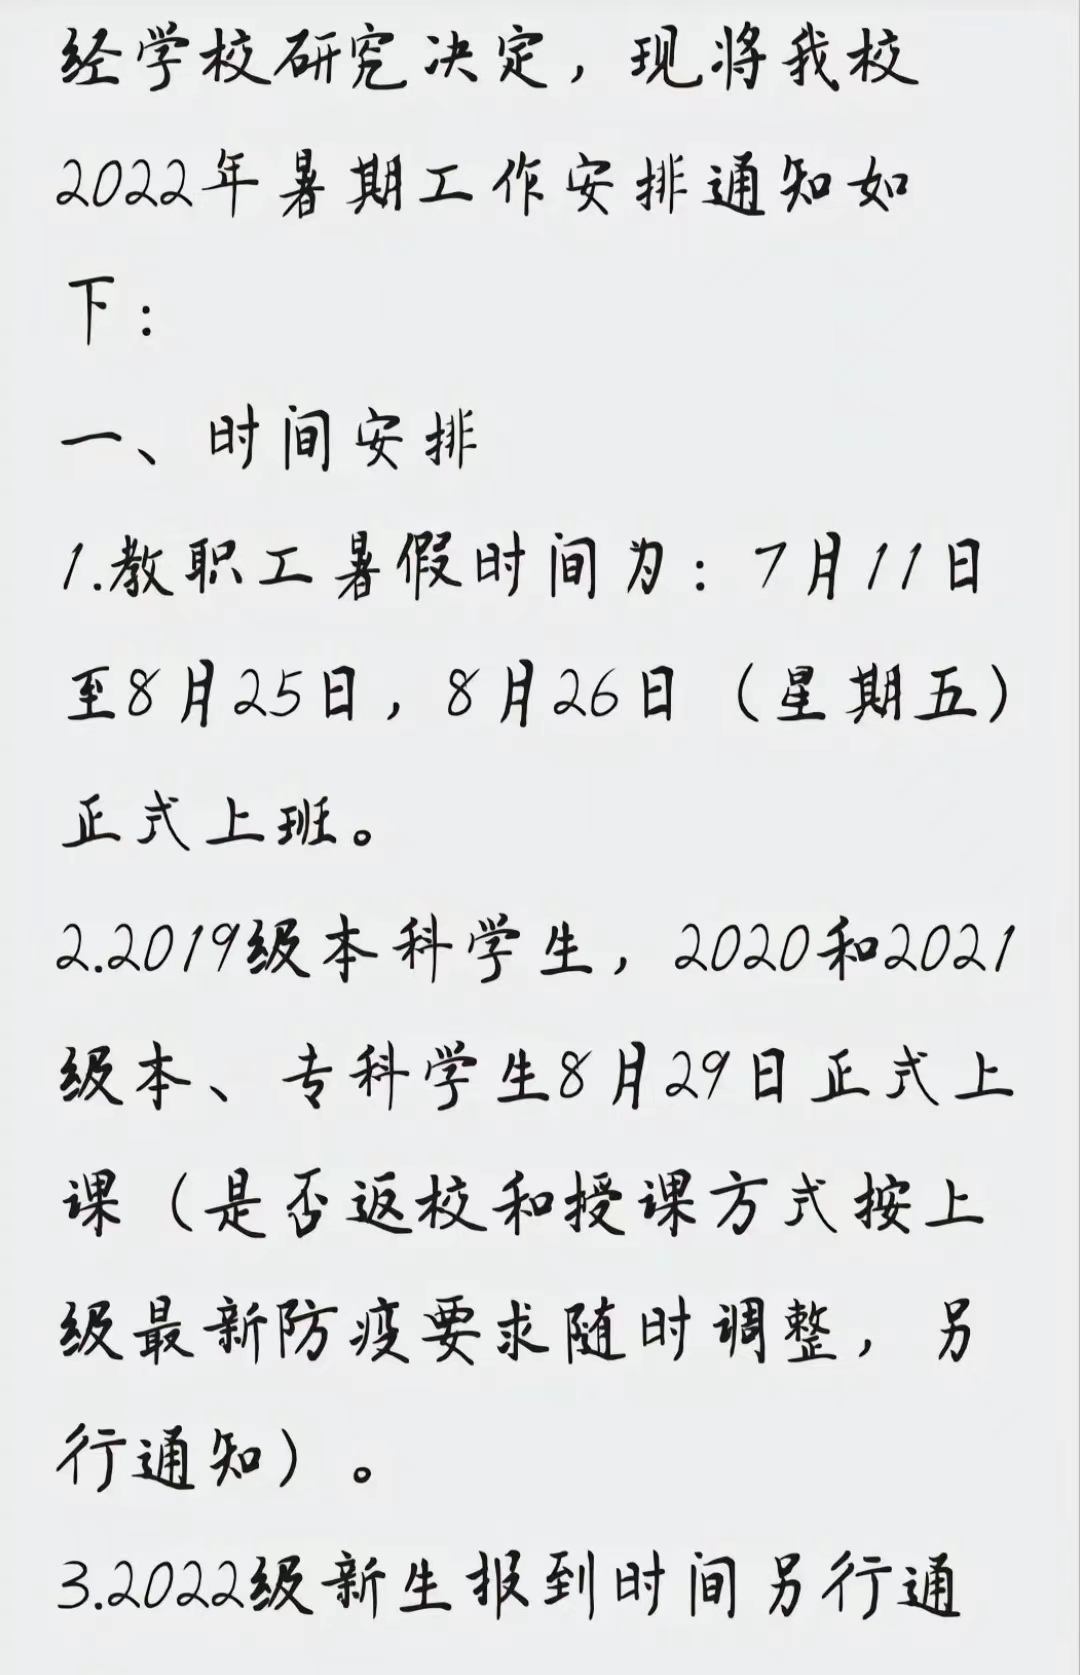 经学校研究决定，现将我校
2022年暑期工作安排通知如
下：
一、时间安排
1.教职工暑假时间为：7月11日
至8月25日，8月26日（星期五）
正式上班。
2.2019级本科学生，2020和2021
级本、专科学生8月29日正式上
课（是否返校和授课方式按上
级最新防疫要求随时调整，另
行通知）。
3.2022级新生报到时间另行通